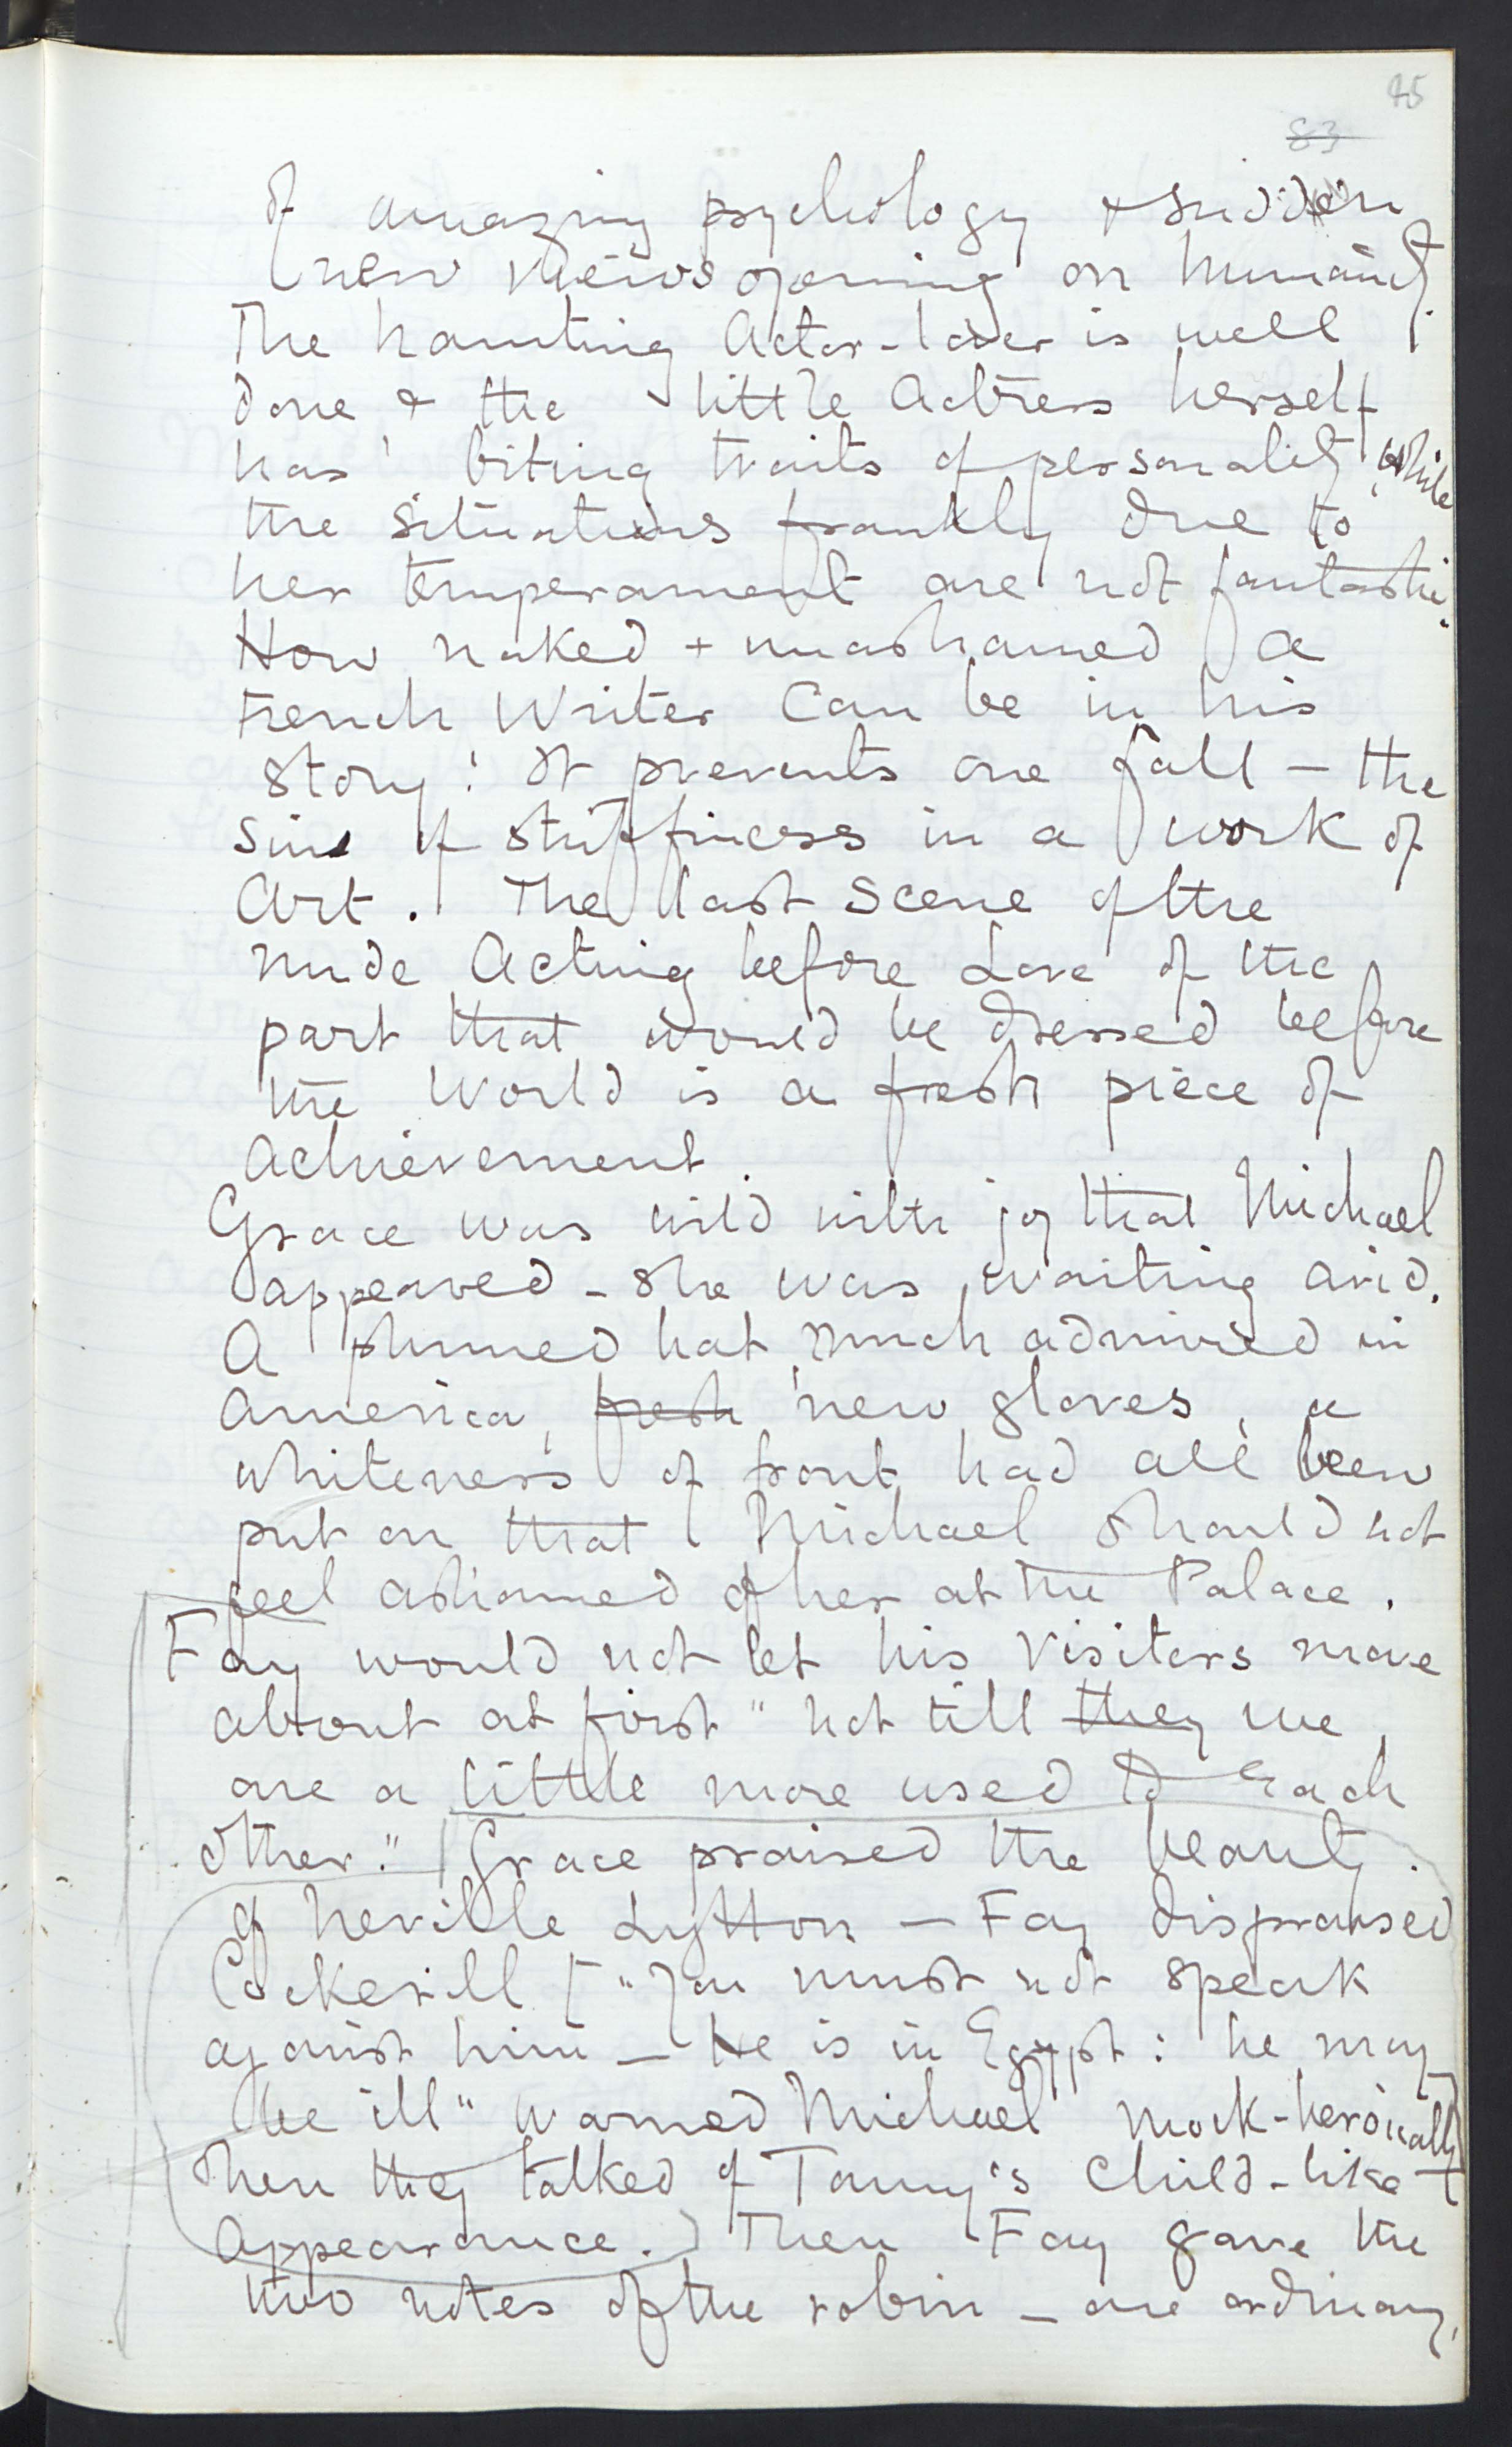 45
83
of amazing psychology & sudden
new views opening on humanity.
The haunting Actor-lover is well
done & the little Actress herself
has biting traits of personality, while
the situations frankly due to
her temperament are not fantastic.
How naked + unashamed a
French Writer can be in his
story! It prevents one fall – the
sin of stuffiness in a work of
Art. The last scene of the
nude Acting before Love of the
part that would be dressed before
the World is a fresh piece of
achievement.
Grace was wild with joy that Michael
appeared – she was waiting avid.
A plumed hat, much admired in
America, fresh new gloves, a
whiteness of front had all been
put on that Michael should not
feel ashamed of her at the Palace.
Fay would not let his visitors move
about at first "not till they we
are a little more used to each
other." Grace praised the beauty
of Neville Lytton – Fay dispraised
Cockerill ["You must not speak
against him – He is in Egypt: he may
be ill" warned Michael mock-heroically]
Then they talked of Tommy's child-like
appearance.) Then Fay gave the
two notes of the robin – one ordinary,